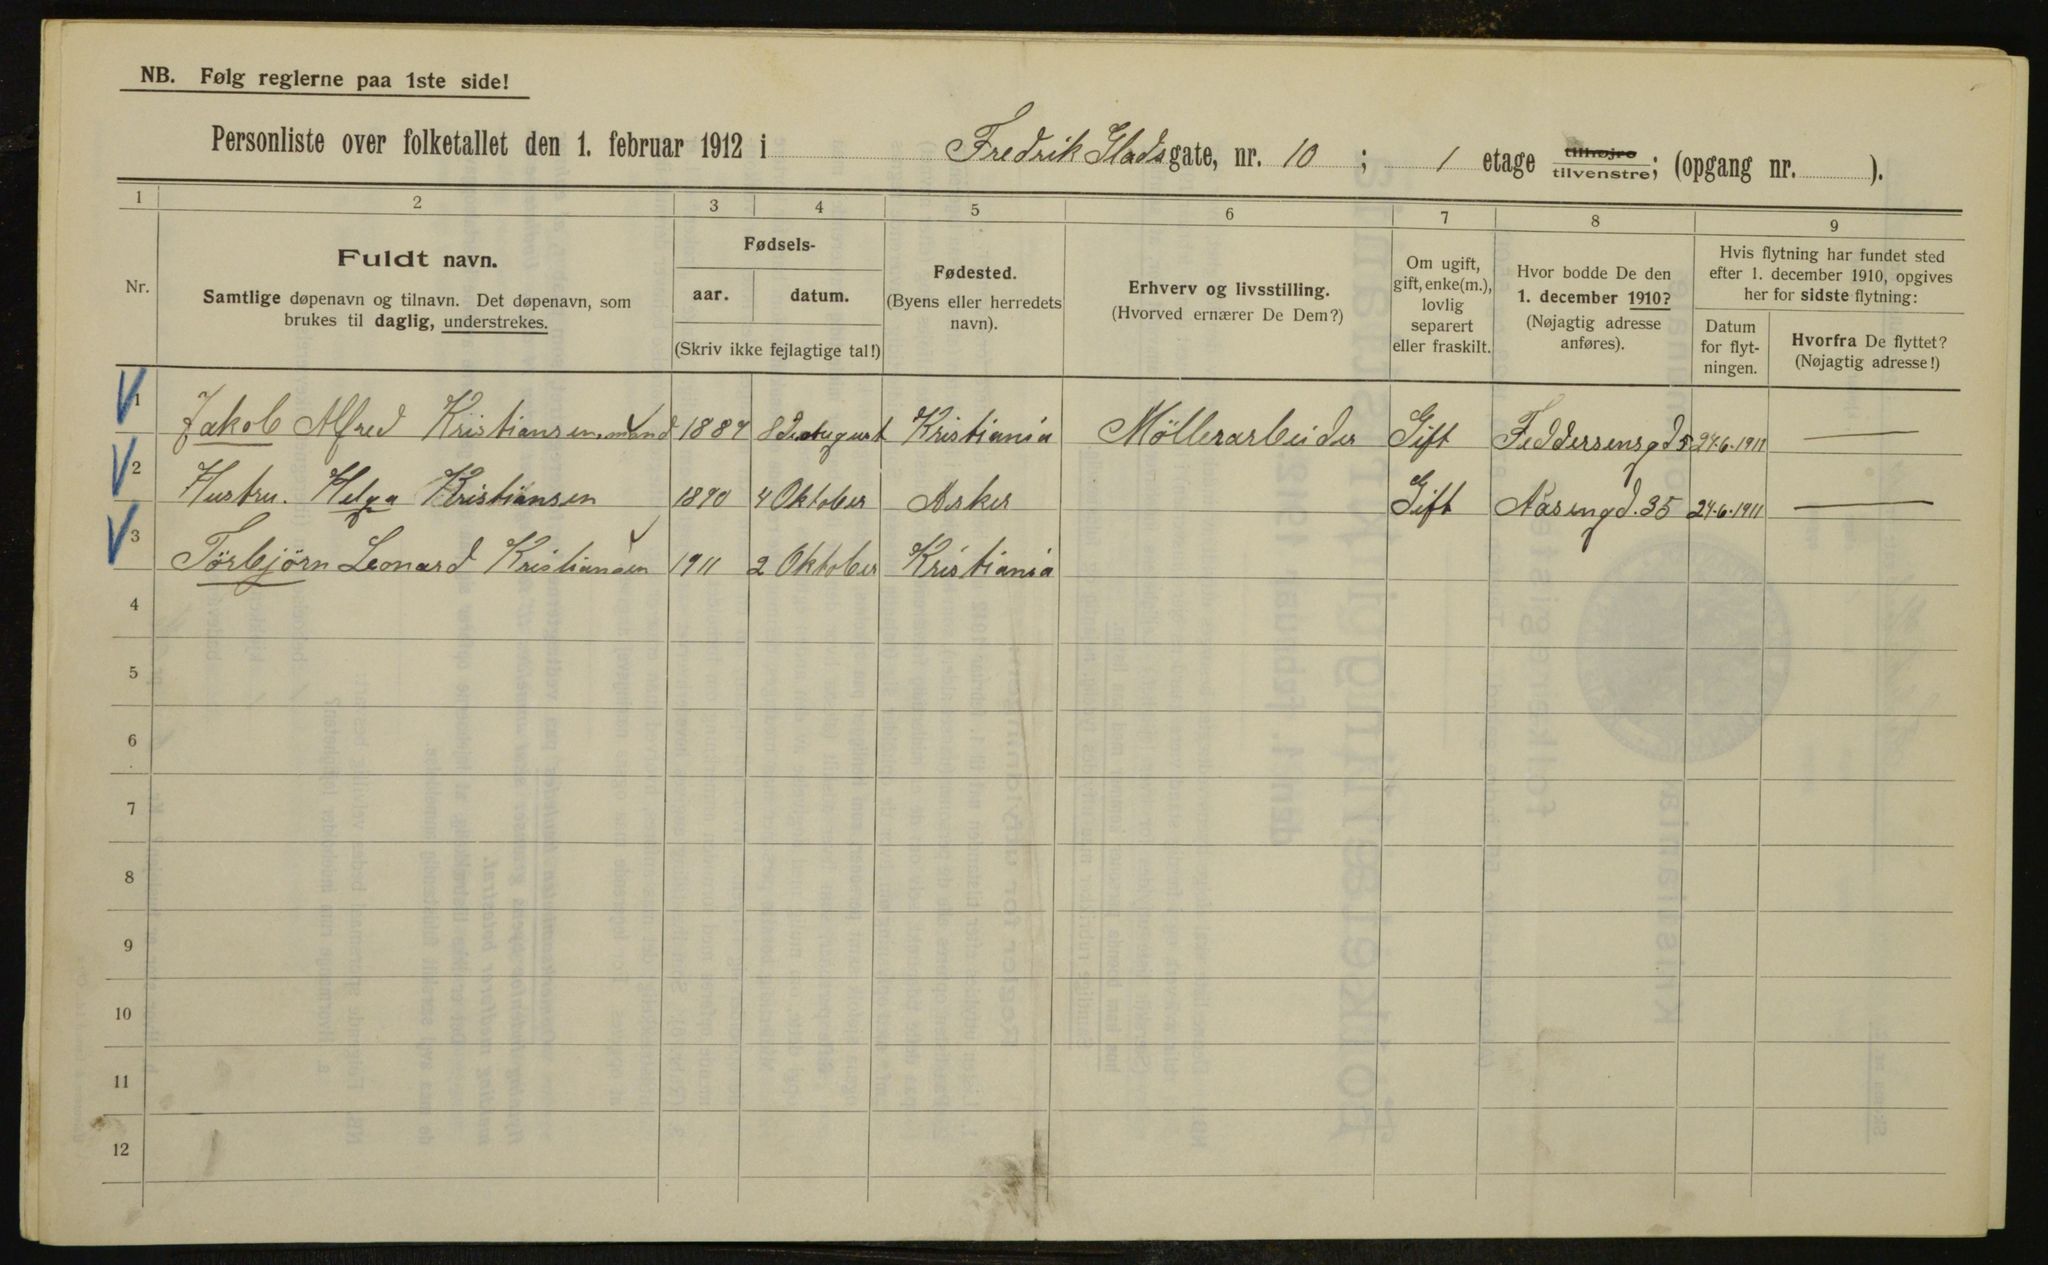 NB. Følg reglerne paa 1ste side!
Personliste over folketallet den 1. februar 1912 i Fredrik Gladsgate, nr. 10 ; 1 etage tilhøjre tilvenstre; (opgang nr. ).
1 2 3 4 5 6 7 8 9
Nr.
Fuldt navn.
Samtlige døpenavn og tilnavn. Det døpenavn, som
brukes til daglig, understrekes.
Fødsels-
aar. datum.
(Skriv ikke fejlagtige tal!)
Fødested.
(Byens eller herredets
navn).
Erhverv og livsstilling.
(Hvorved ernærer De Dem?)
Om ugift,
gift, enke(m.),
lovlig
separert
eller fraskilt.
Hvor bodde De den
1. december 1910?
(Nøjagtig adresse
anføres).
Hvis flytning har fundet sted
efter 1. december 1910, opgives
her for sidste flytning:
Datum
for flyt-
ningen.
Hvorfra De flyttet?
(Nøjagtig adresse!)
1 Jakob Alfred Kristiansen, mand 1887 8 August Kristiania Möllerarbeider Gift Feddersensgd 5 24-6-1911 —
2 Hustru. Helga Kristiansen 1890 4 Oktober Asker Gift Aasengd. 35 24-6-1911 —
3 Törbjörn Leonard Kristiansen 1911 2 Oktober Kristiania
4
5
6
7
8
9
10
11
12